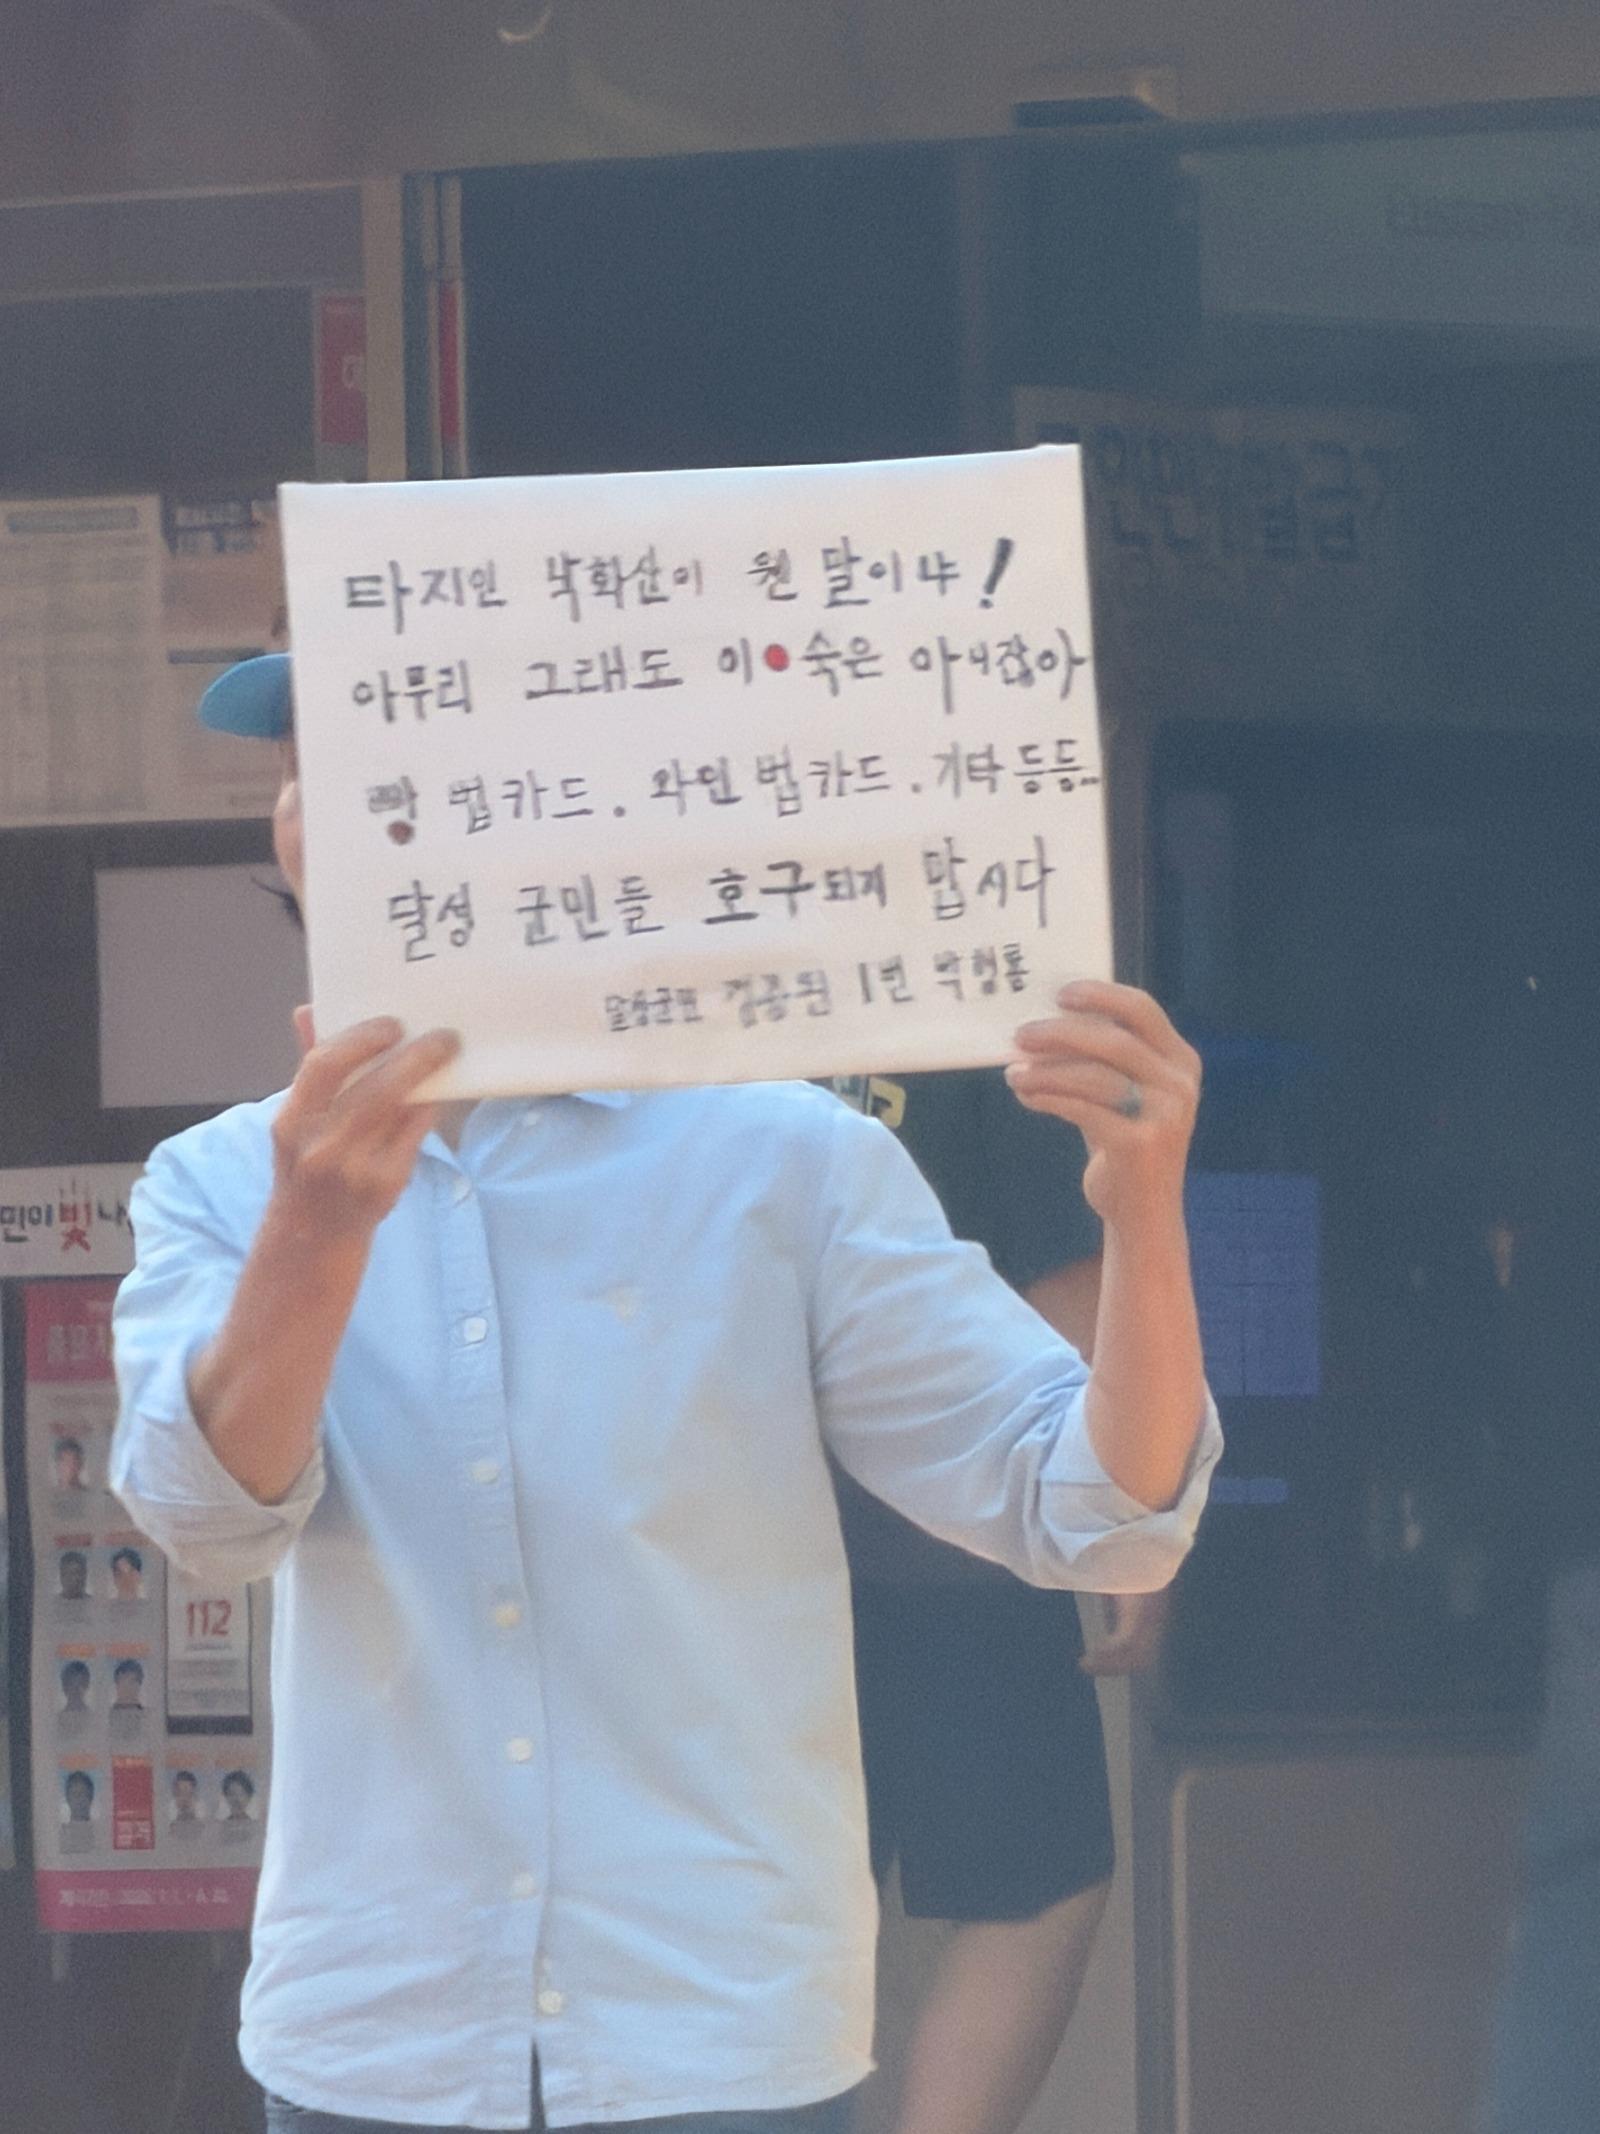 타지인 낙하산이 웬 말이냐!
아무리 그래도 이●숙은 아니잖아
빵 법카드. 와인 법카드. 기타 등등..
달성 군민들 호구되지 맙시다
달성군민 1번 박형룡
민이 빛나
112